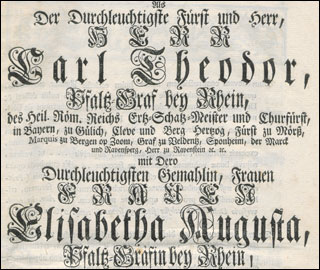 Als
Der Durchleuchtigste Fürst und Herr,
HERR
Carl Theodor,
Pfaltz-Graf bey Rhein,
des Heil. Röm. Reichs Ertz-Schatz-Meister und Churfürst,
in Bayern, zu Gülich, Cleve und Berg Hertzog, Fürst zu Mörß,
Marquis zu Bergen op Zoom, Graf zu Veldentz, Sponheim, der Marck
und Ravensperg, Herr zu Ravenstein ec. ec.
mit Dero
Durchleuchtigsten Gemahlin, Frauen
FRAUEN
Elisabetha Augusta,
Pfaltz-Gräfin bey Rhein,